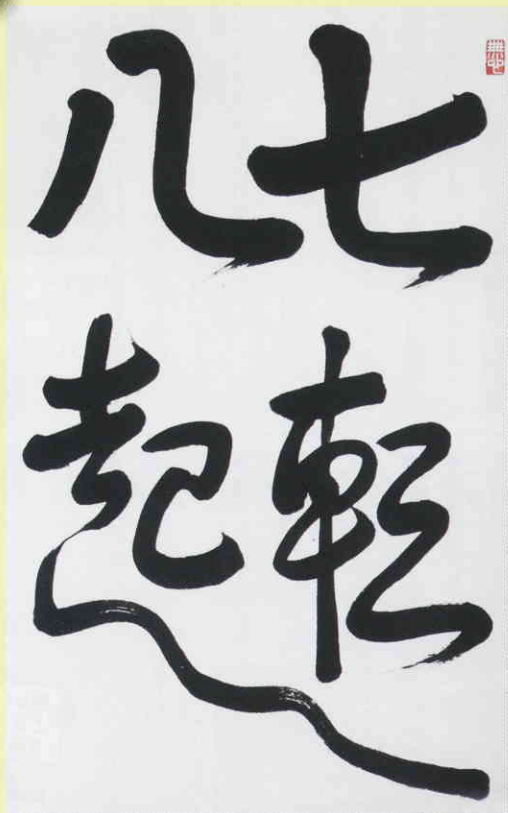 七転
八起